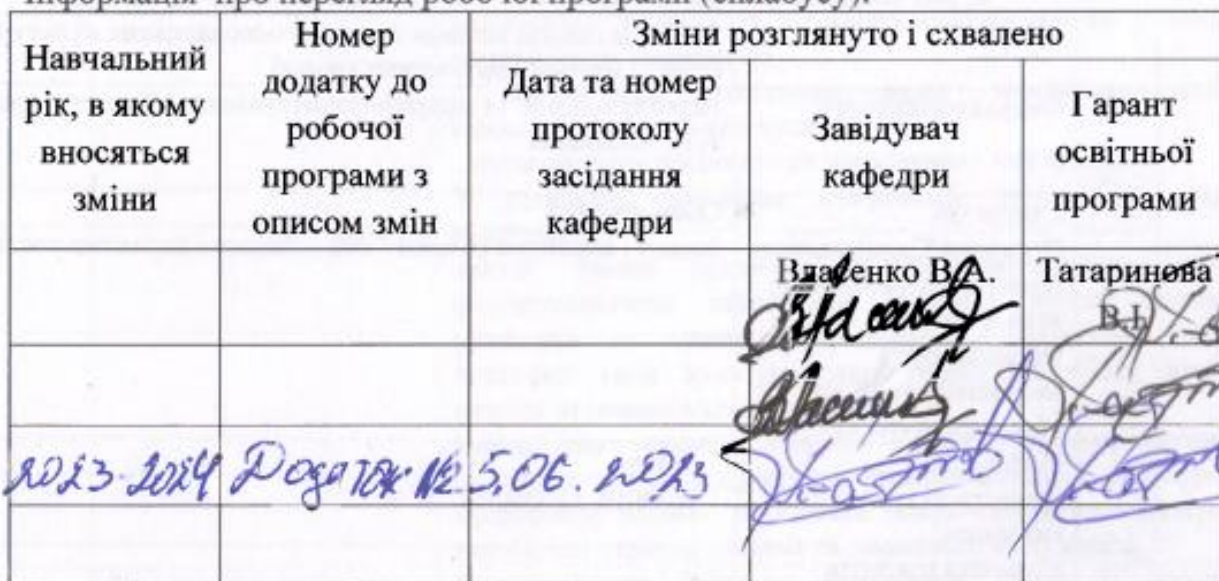 Інформація про перегляд робочої програми (силабусу):
Навчальний
рік, в якому
вносяться
зміни
Номер
додатку до
робочої
програми з
описом змін
Зміни розглянуто і схвалено
Дата та номер
протоколу
засідання
кафедри
Завідувач
кафедри
Гарант
освітньої
програми
Власенко В.А.
Татаринова
В.І.
2023-2024
Додаток №2
5.06.2023